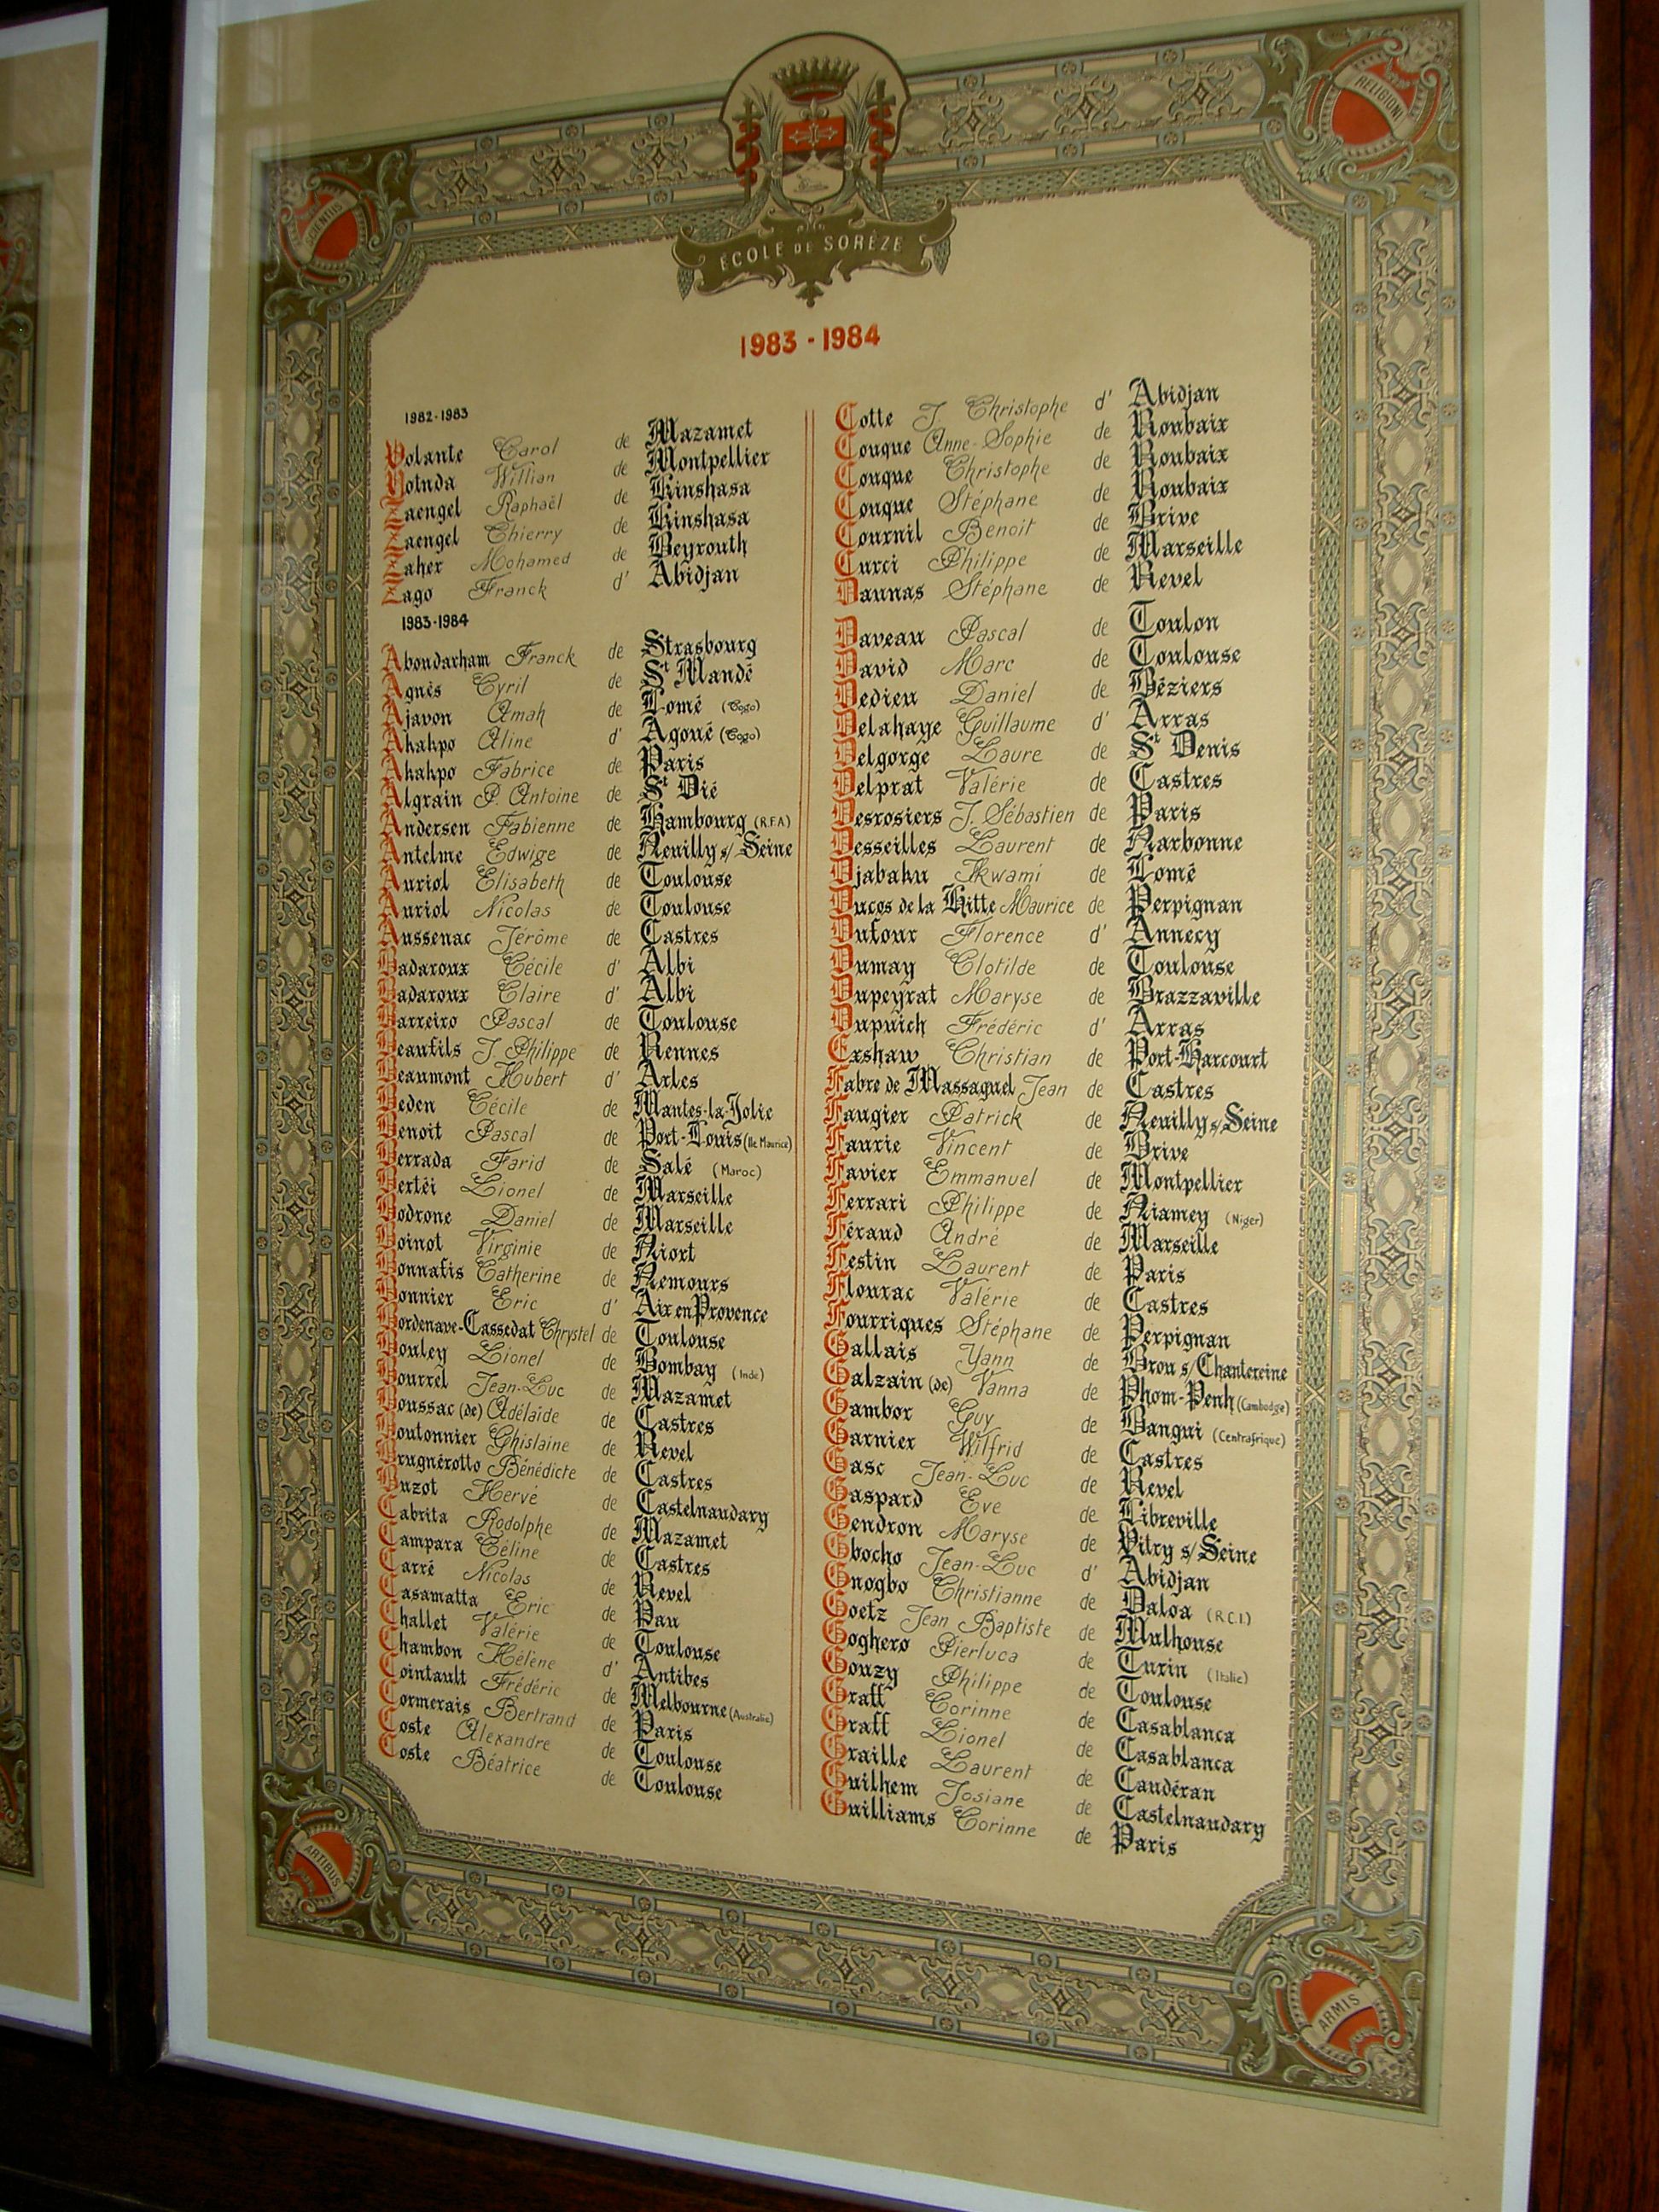 RELIGIONI
SCIENTIIS
ÉCOLE DE SORÈZE
1983 - 1984
1982-1983
Volante Carol de Mazamet
Votuda Willian de Montpellier
Zaengel Raphaël de Kinshasa
Zaengel Thierry de Kinshasa
Zaher Mohamed de Beyrouth
Zago Franck d' Abidjan
1983-1984
Aboudarham Franck de Strasbourg
Agnès Cyril de St Mandé
Ajavon Amah de Lomé (Togo)
Akakpo Aline d' Agoué (Togo)
Akakpo Fabrice de Paris
Algrain P. Antoine de St Dié
Andersen Fabienne de Hambourg (R.F.A)
Antelme Edwige de Neuilly s/ Seine
Auriol Elisabeth de Toulouse
Auriol Nicolas de Toulouse
Aussenac Jérôme de Castres
Badaroux Cécile d' Albi
Badaroux Claire d' Albi
Barreiro Pascal de Toulouse
Beaufils J. Philippe de Rennes
Beaumont Hubert d' Arles
Beden Cécile de Mantes-la-Jolie
Benoit Pascal de Port-Louis (Ile Maurice)
Berrada Farid de Salé (Maroc)
Bertéi Lionel de Marseille
Bodrone Daniel de Marseille
Boinot Virginie de Niort
Bonnafis Catherine de Nemours
Bonnier Eric d' Aix en Provence
Bordenave-Cassedat Chrystel de Toulouse
Bouley Lionel de Bombay (Inde)
Bourrel Jean-Luc de Mazamet
Boussac (de) Adélaïde de Castres
Boutonnier Ghislaine de Revel
Brugnérotto Bénédicte de Castres
Buzot Hervé de Castelnaudary
Cabrita Rodolphe de Mazamet
Campara Céline de Castres
Carré Nicolas de Revel
Casamatta Eric de Pau
Challet Valérie de Toulouse
Chambon Hélène d' Antibes
Cointault Frédéric de Melbourne (Australie)
Cormerais Bertrand de Paris
Coste Alexandre de Toulouse
Coste Béatrice de Toulouse
Cotte J. Christophe d' Abidjan
Couque Anne-Sophie de Roubaix
Couque Christophe de Roubaix
Couque Stéphane de Roubaix
Cournil Benoit de Brive
Curci Philippe de Marseille
Daunas Stéphane de Revel
Daveau Pascal de Toulon
David Marc de Toulouse
Dedieu Daniel de Béziers
Delahaye Guillaume d' Arras
Delgorge Laure de St Denis
Delprat Valérie de Castres
Desrosiers J. Sébastien de Paris
Desseilles Laurent de Narbonne
Djabaku Kwami de Lomé
Ducos de la Hitte Maurice de Perpignan
Dufour Florence d' Annecy
Dumay Clotilde de Toulouse
Dupeyrat Maryse de Brazzaville
Dupuich Frédéric d' Arras
Exshaw Christian de Port-Harcourt
Fabre de Massaguel Jean de Castres
Faugier Patrick de Neuilly s/ Seine
Faurie Vincent de Brive
Favier Emmanuel de Montpellier
Ferrari Philippe de Niamey (Niger)
Féraud André de Marseille
Festin Laurent de Paris
Flourac Valérie de Castres
Fourriques Stéphane de Perpignan
Gallais Yann de Brou s/ Chantereine
Galzain (de) Vanna de Phom-Penh (Cambodge)
Gambor Guy de Bangui (Centrafrique)
Garnier Wilfrid de Castres
Gasc Jean-Luc de Revel
Gaspard Eve de Libreville
Gendron Maryse de Vitry s/ Seine
Gbocho Jean-Luc d' Abidjan
Gnogbo Christianne de Daloa (R.C.I.)
Goetz Jean Baptiste de Mulhouse
Goghero Pierluca de Turin (Italie)
Gouzy Philippe de Toulouse
Graff Corinne de Casablanca
Graff Lionel de Casablanca
Graille Laurent de Caudéran
Guilhem Josiane de Castelnaudary
Guilliams Corinne de Paris
ARTIBUS
ARMIS